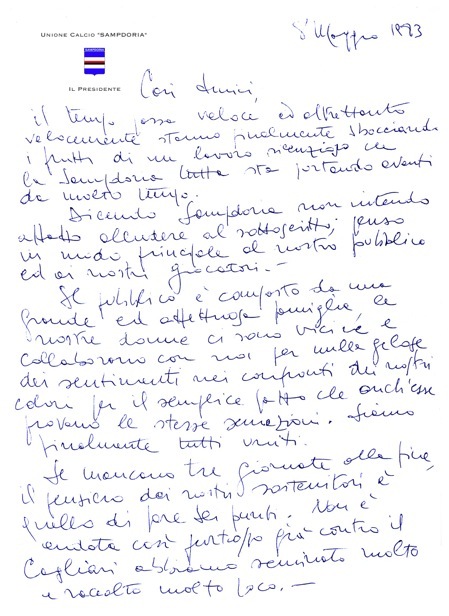 UNIONE CALCIO "SAMPDORIA"
SAMPDORIA
IL PRESIDENTE
8 Maggio 1983
Cari Amici,
il tempo passa veloce ed altrettanto
velocemente stanno finalmente sbocciando
i frutti di un lavoro silenzioso che
la Sampdoria tutta sta portando avanti
da molto tempo.
Dicendo Sampdoria non intendo
affatto alludere al sottoscritto, penso
in modo principale al nostro pubblico
ed ai nostri giocatori. —
Il pubblico è composto da una
grande ed affettuosa famiglia, le
nostre donne ci sono vicine e
collaborano con noi per nulla gelose
dei sentimenti nei confronti dei nostri
colori per il semplice fatto che anch'esse
provano le stesse sensazioni. Siamo
finalmente tutti uniti.
Se mancano tre giornate alla fine,
il pensiero dei nostri sostenitori è
quello di fare sei punti. Non è
andata così purtroppo già contro il
Cagliari abbiamo seminato molto
e raccolto molto poco. —